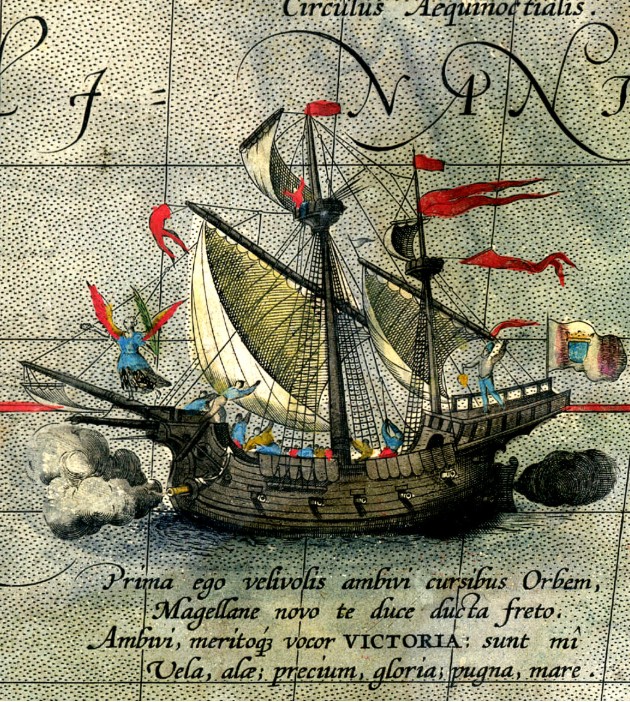 Circulus Aequinoctialis.
Prima ego velivolis ambivi cursibus Orbem,
Magellane novo te duce ducta freto.
Ambivi, meritoqꝫ vocor VICTORIA: sunt mî
Vela, alæ; precium, gloria; pugna, mare.